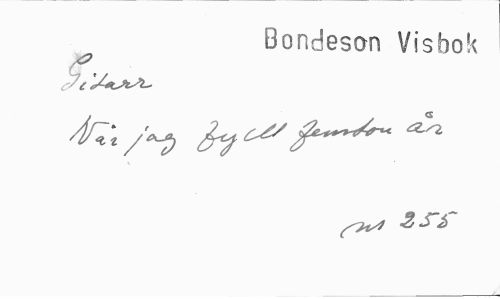 Bondeson Visbok
Gitarr
När jag fyllt femton år
nr 255